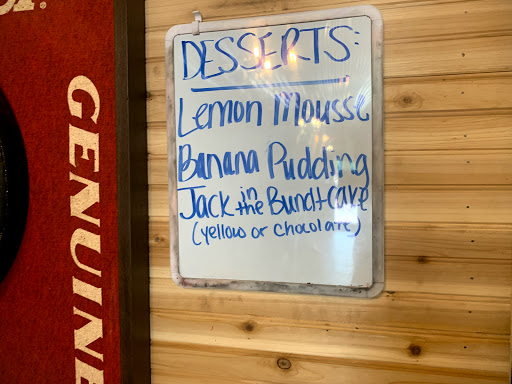 DESSERTS:
Lemon Mousse
Banana Pudding
Jack in the Bundt Cake
(yellow or chocolate)
GENUINE
®